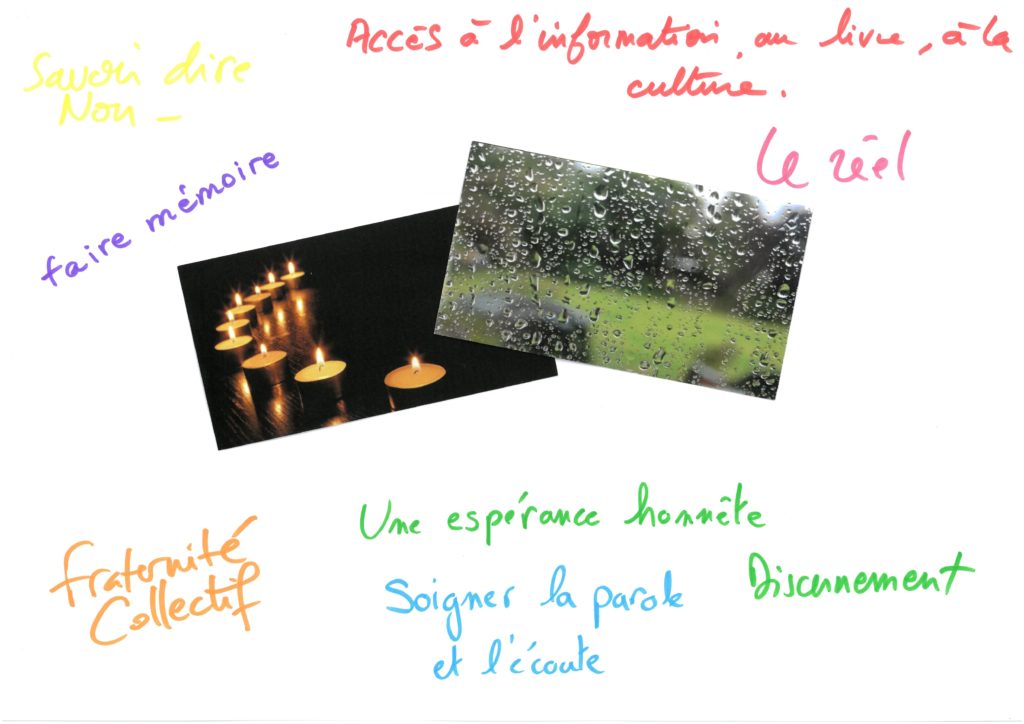 Savoir dire
Non –
Accès à l'information, au livre, à la
culture.
Le réel
faire mémoire
Une espérance honnête
Discernement
Fraternité
Collectif
Soigner la parole
et l'écoute